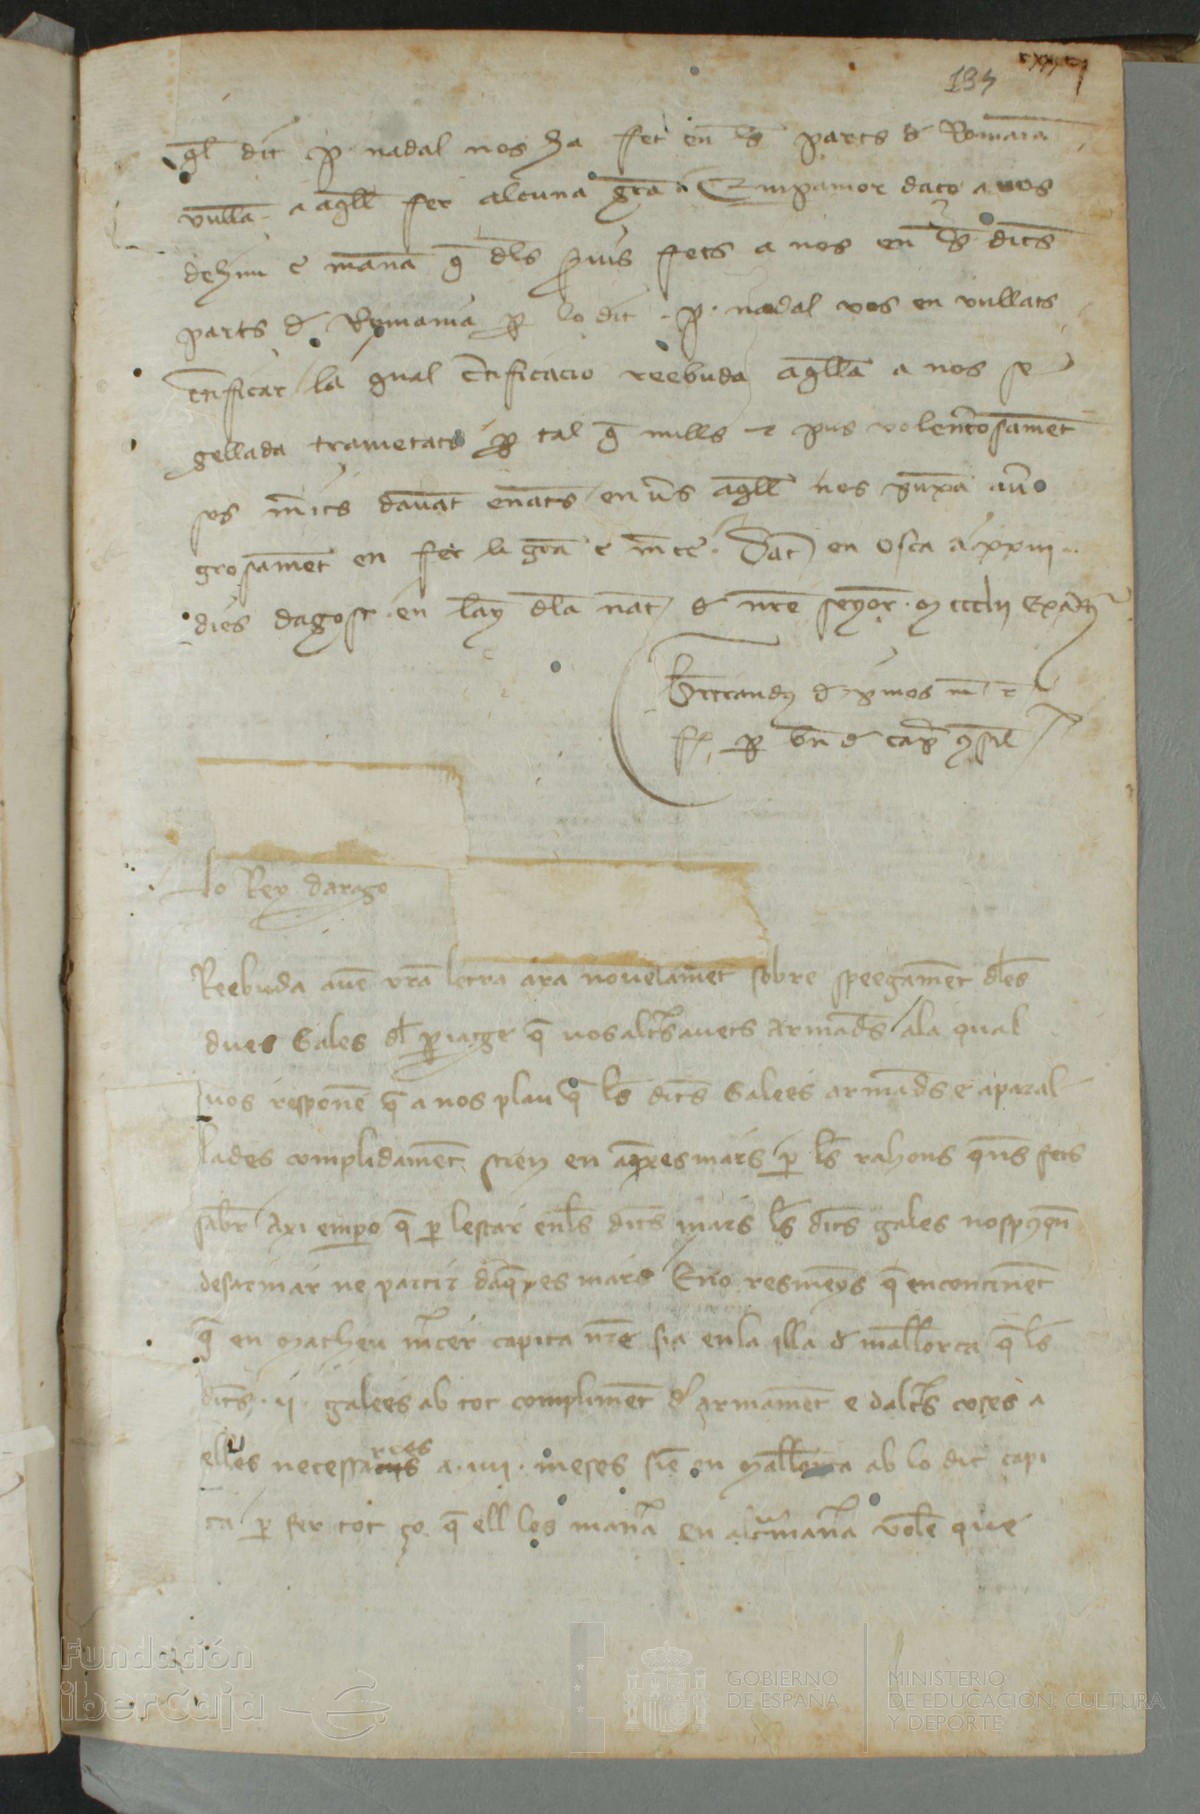 134 cxxxiiij
q̄l dit p. nadal nos ha fet en l̄s parts d Romania
vullā a aq̄ll fer alcuna gr̄a Emp amor daço a uos
dehim e manā q̄ dl̄s s̄uis fets a nos en l̄s dit̄s
parts d Romania p̱ lo dit . p . nadal vos en vullats
c̄tificar la qual c̄tificacio reebuda aq̄lla a nos se
gellada trametats p̱ tal q̄ nulls e pus volent̄osamēt
ses m̄its dauāt
grosamēt en fer li gr̄a e m̄ce . Dat̄ en Osca a xxiii
dies dagost en lāy dl̄a nat̄ d nr̄e seyor . M ccclii
lo Rey darago
Reebuda auē vr̄a letra ara nouelamēt sobre speegamēt dl̄es
dues Galees dl̄ p̱iatge q̄ uosalt̄s auets armad̄s ala qual
uos responē q̄ a nos plau q̄ l̄s dit̄s Galees armad̄s e aparal
lades complidamēt stien en aq̄xes mars p̱ l̄s rahons quēs fets
sab̄r Axi emp̱o q̄ p̱ lestar enl̄s dit̄s mars l̄s dit̄s galees nos
desarmar ne partir daq̄xes mars Eno resmēys q̄ encontinēt
q̄ en Matheu m̄cer capita nr̄e sia enla illa d mall̄orca q̄ l̄s
dit̄s . ii . galees ab tot complimēt d armamēt e dalt̄s coses a
elles necessaries a . iiii . meses siē en Mall̄orca ab lo dit capi
ta p̱ fer tot ço q̄ ell los manā en alt̄ manā volē que
Fundación
iberCaja
GOBIERNO
DE ESPAÑA
MINISTERIO
DE EDUCACIÓN, CULTURA
Y DEPORTE